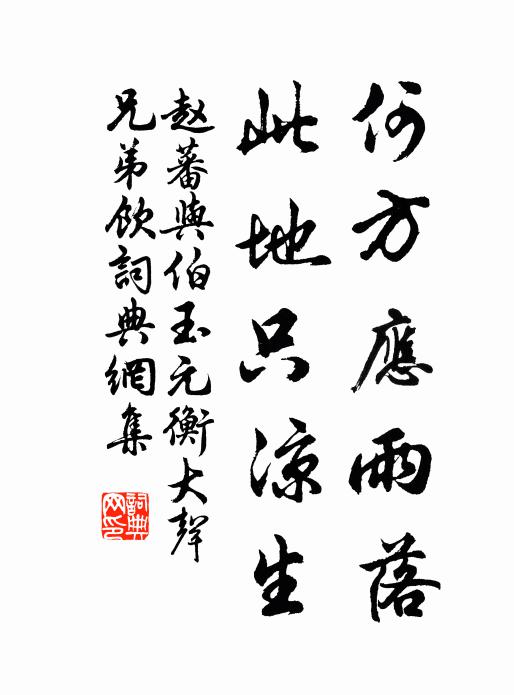 何方應雨落
此地只凉生
赵蕃與伯玉元衡大聲
兄弟飲詞典網集
詞典
网印